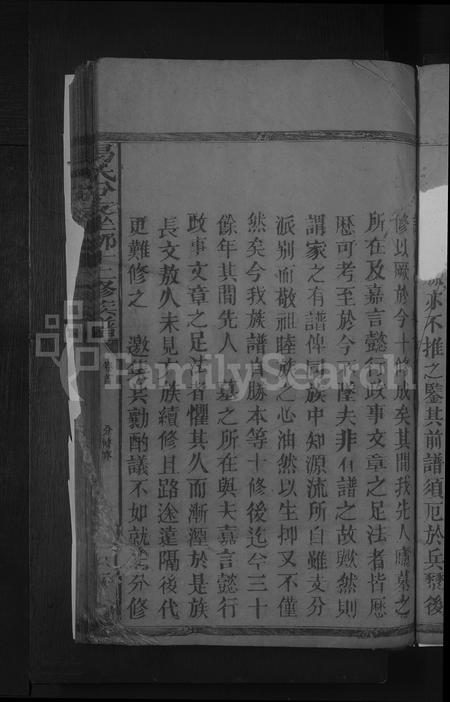 亦不推之鑒其前譜須厄於兵燹後
修以厥於今十修成矣其間我先人廬墓之
所在及嘉言懿行政事文章之足法者皆歷
歷可考至於今不墜夫非有譜之故歟然則
謂家之有譜俾同族中知源流所自雖支分
派别而敬祖睦族之心油然以生抑又不僅
然矣今我族譜自勝本等十修後迄今三十
餘年其間先人墓之所在與夫嘉言懿行
政事文章之足法者懼其久而漸湮於是族
長文敖久未見族續修且路途遠隔後代
更難修之 邀集共勷酌議不如就分修
氏分 十二修族譜
分修序
FamilySearch